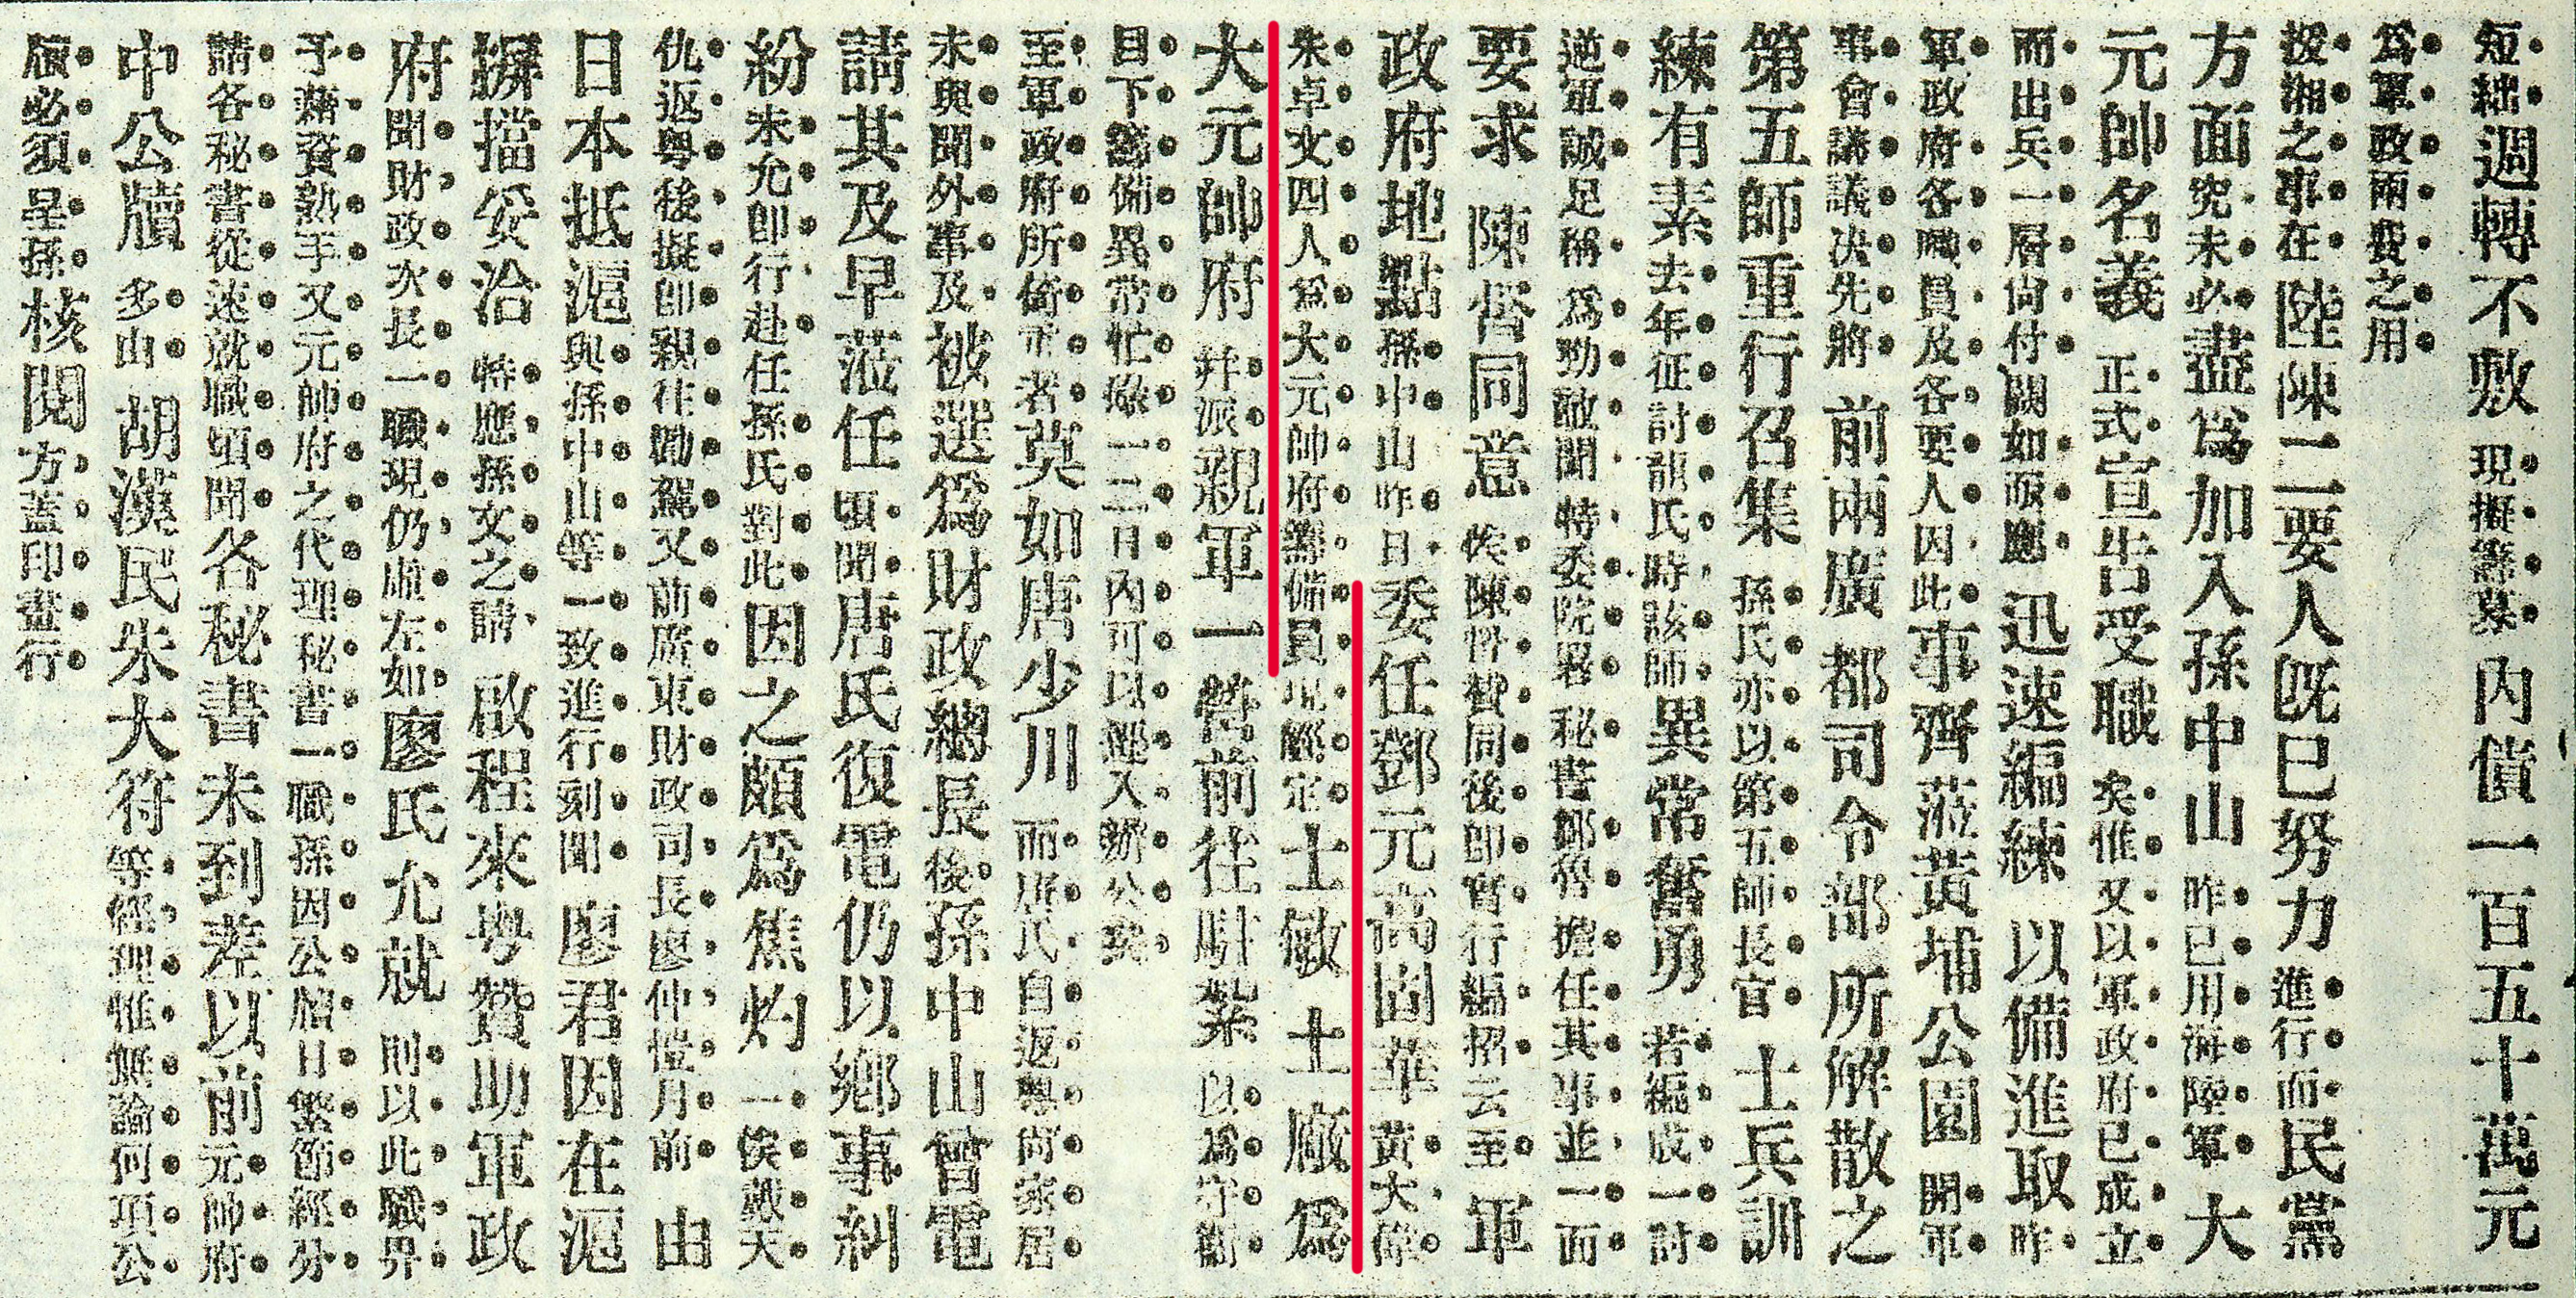 短絀週轉不敷現擬籌募內債一百五十萬元
爲軍政兩費之用
援湘之事在陸陳二要人旣已努力進行而民黨
方面究未必盡爲加入孫中山昨已用海陸軍大
元帥名義正式宣告受職矣惟又以軍政府已成立
而出兵一層尙付闕如亟應迅速編練以備進取昨
軍政府各職員及各要人因此事齊蒞黃埔公園開軍
事會議議决先將前兩廣都司令部所解散之
第五師重行召集孫氏亦以第五師長官士兵訓
練有素去年征討龍氏時該師異常奮勇若編成一討
逆軍誠足稱爲勁敵聞特委院署秘書鄒魯擔任其事並一面
要求陳督同意俟陳督贊同後卽實行編招云至軍
政府地點孫中山昨日委任鄧元萬固華黃大偉
朱卓文四人爲大元帥府籌備員現經定士敏土廠爲
大元帥府幷派親軍一營前往駐紮以爲守衛
目下籌備異常忙碌一二日內可以遷入辦公矣
至軍政府所倚重者莫如唐少川而唐氏自返粵尙家居
未與聞外事及被選爲財政總長後孫中山曾電
請其及早蒞任頃聞唐氏復電仍以鄉事糾
紛未允卽行赴任孫氏對此因之頗爲焦灼一俟戴天
仇返粵後擬卽親往勸駕又前廣東財政司長廖仲愷月前由
日本抵滬與孫中山等一致進行刻聞廖君因在滬
摒擋妥洽特應孫文之請啟程來粵贊助軍政
府聞財政次長一職現仍虛左如廖氏允就則以此職畀
予藉資熟手又元帥府之代理秘書一職孫因公牘日繁節經分
請各秘書從速就職頃聞各秘書未到差以前元帥府
中公牘多由胡漢民朱大符等經理惟無論何項公
牘必須呈孫核閱方蓋印畫行